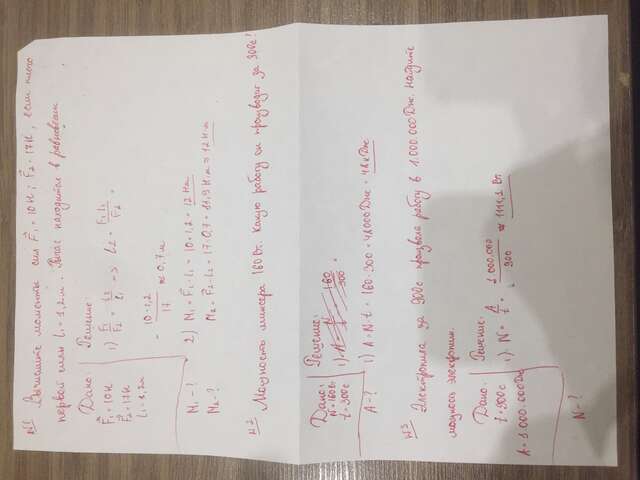 №1 Вычислите моменты сил F₁ = 10Н; F₂ = 17Н, если плечо
первой силы l₁ = 1,2 м. Рычаг находится в равновесии
Дано:
F₁ = 10Н
F₂ = 17Н
l₁ = 1,2м
M₁ - ?
M₂ - ?
Решение
1) F₁/F₂ = l₂/l₁ => l₂ = F₁·l₁/F₂ =
= 10·1,2/17 ≈ 0,7 м
2) M₁ = F₁·l₁ = 10·1,2 = 12 Н·м
M₂ = F₂·l₂ = 17·0,7 = 11,9 Н·м ≈ 12 Н·м
№2
Мощность миксера 160 Вт. Какую работу он производит за 300с?
Дано:
N = 160Вт
t = 300с
A - ?
Решение:
1) A N 160/300
1) A = N·t = 160·300 = 48000 Дж = 48кДж
№3
Электропила за 900с произвела работу в 1.000.000 Дж. Найдите
мощность электропилы.
Дано:
t = 900с
A = 1.000.000 Дж
N - ?
Решение:
1). N = A/t = 1.000.000/900 ≈ 1111,1 Вт